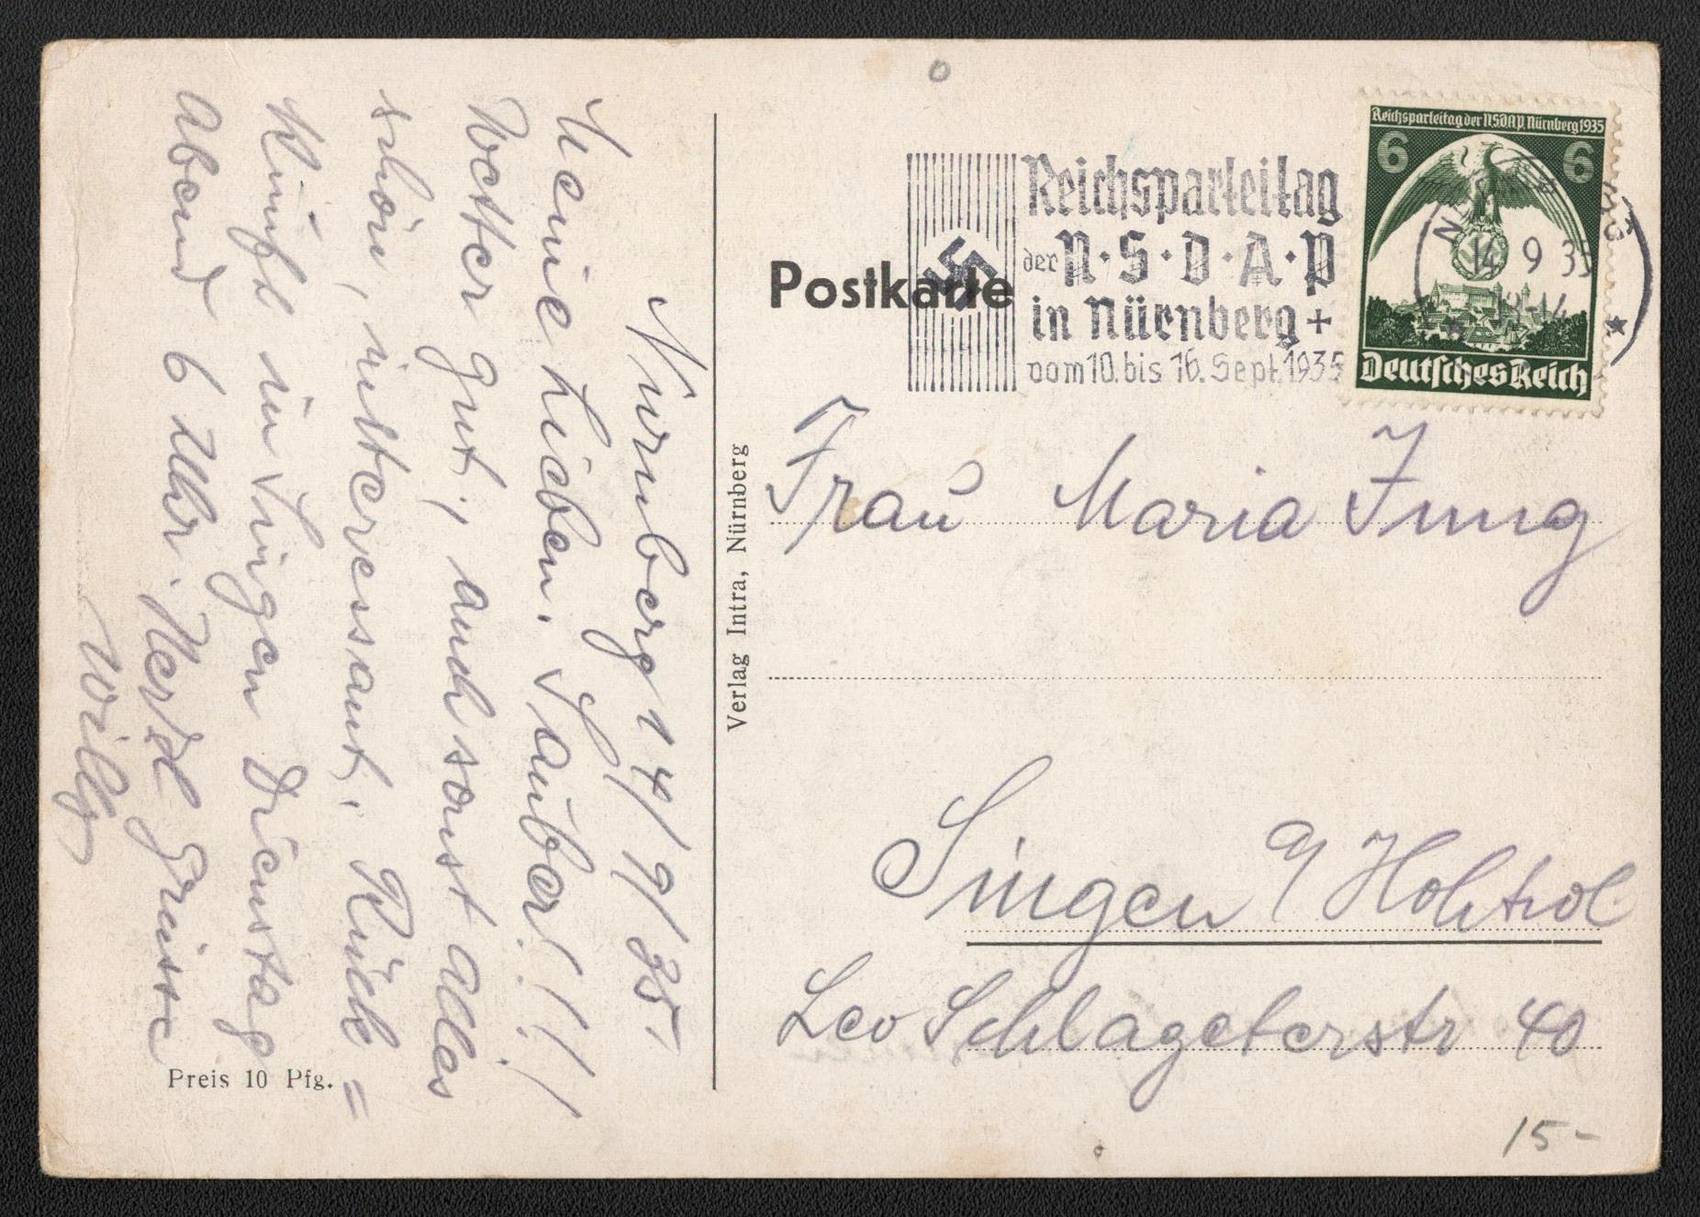 Nürnberg 14/9/35.
Meine Lieben. Sauber!!!
Wetter gut, auch sonst alles
schön, intteressant. Rück=
künft in Singen Dienstag
Abend 6 Uhr. Herzl Grüsse
Willy
Preis 10 Pfg.
Verlag Intra, Nürnberg
Postkarte
Reichsparteitag
der N·S·D·A·P
in Nürnberg +
vom 10. bis 16. Sept. 1935
Reichsparteitag der NSDAP. Nürnberg 1935
6 6
14 9 35
Deutsches Reich
Frau Maria Jung
Singen a/ Hohtwl
Leo Schlageterstr 40
15-